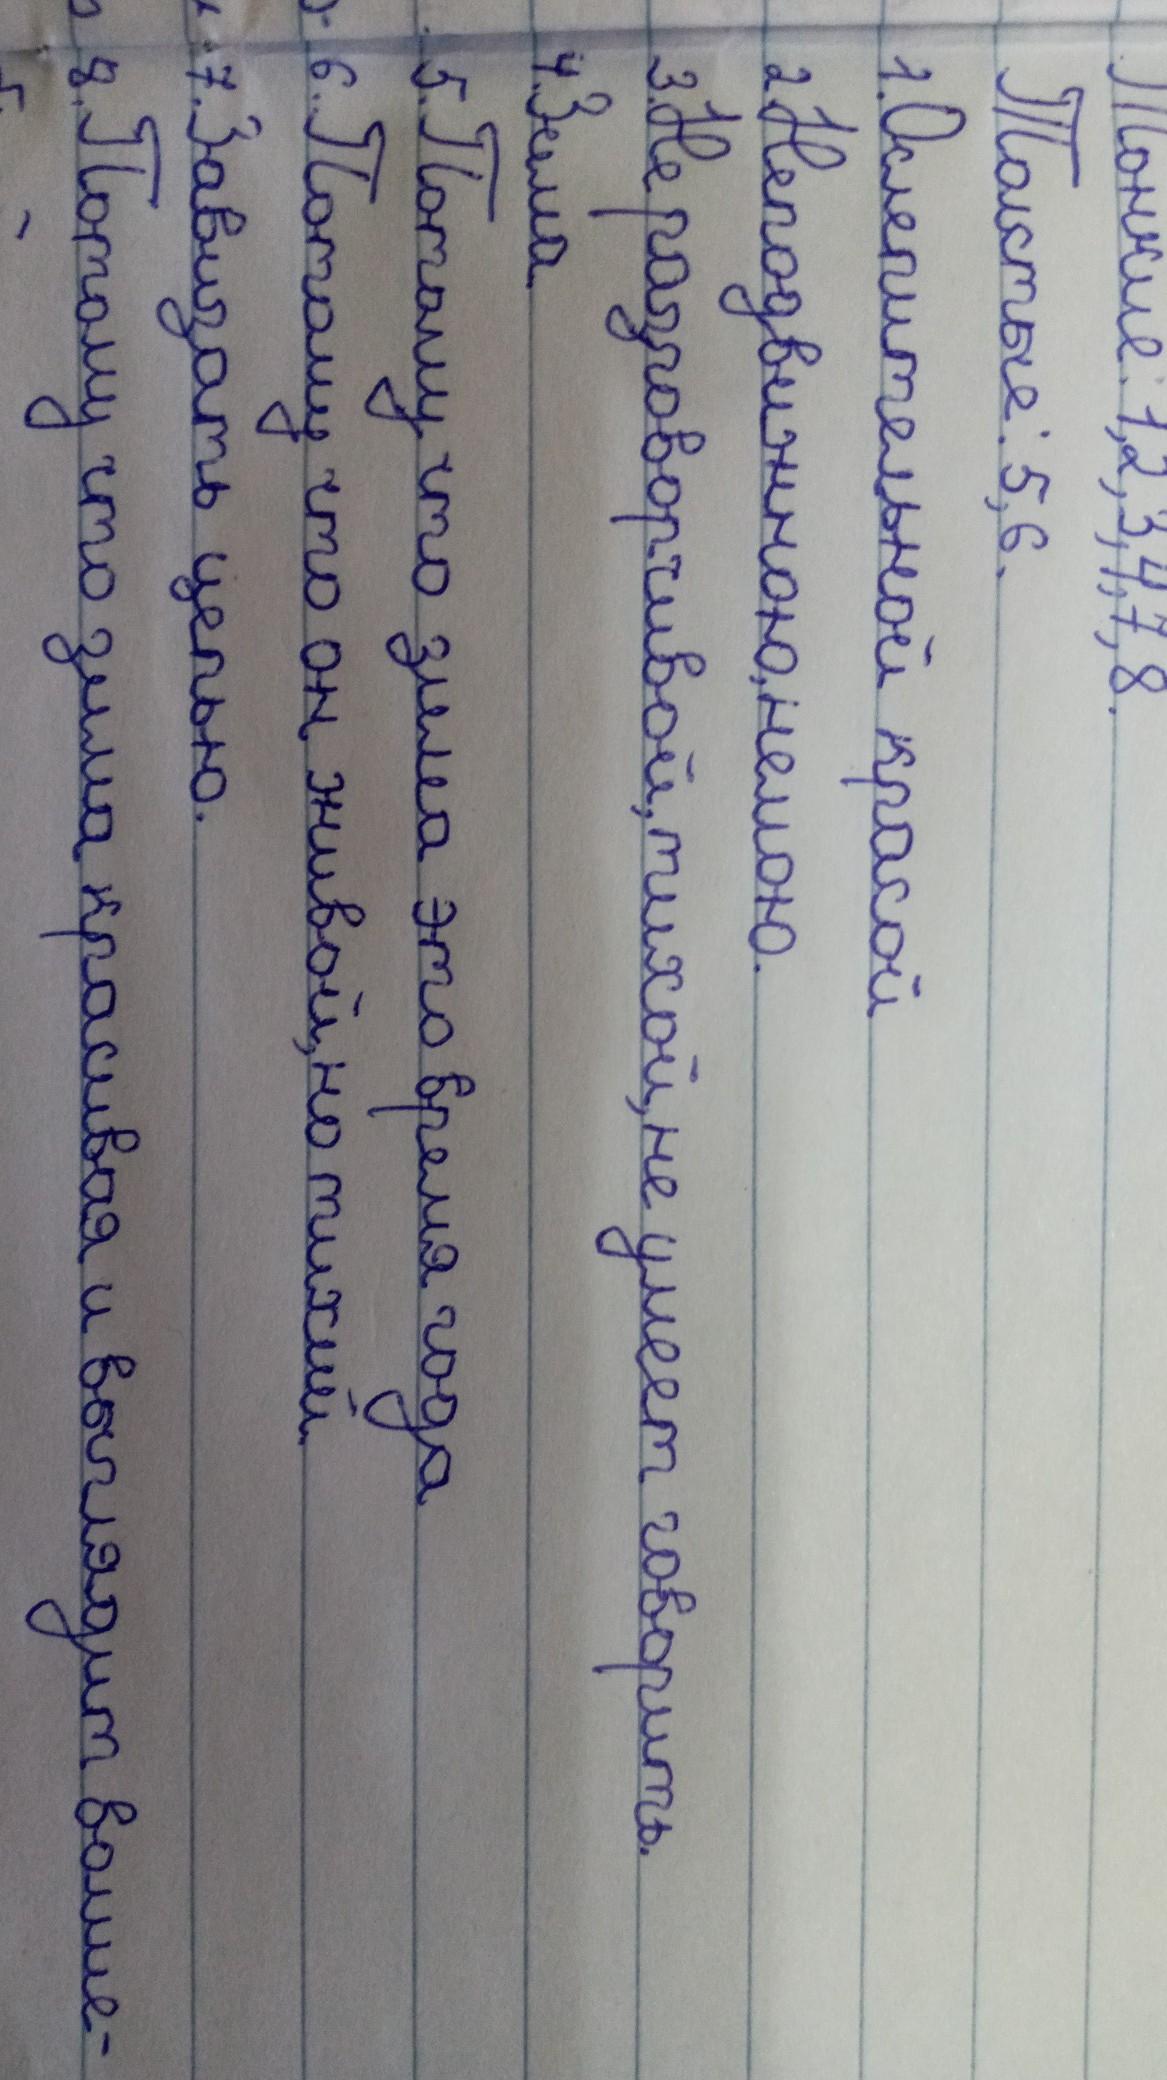 Тонкие: 1,2,3,4,7,8.
Толстые: 5,6.
1. Ослепительной красой
2. Неподвижною, немою.
3. Не разговорчивой, тихой, не умеет говорить.
4. Зима
5. Потому что зима это время года
6. Потому что он живой, но тихий
7. Завязать цепью.
8. Потому что зима красивая и выглядит волше-